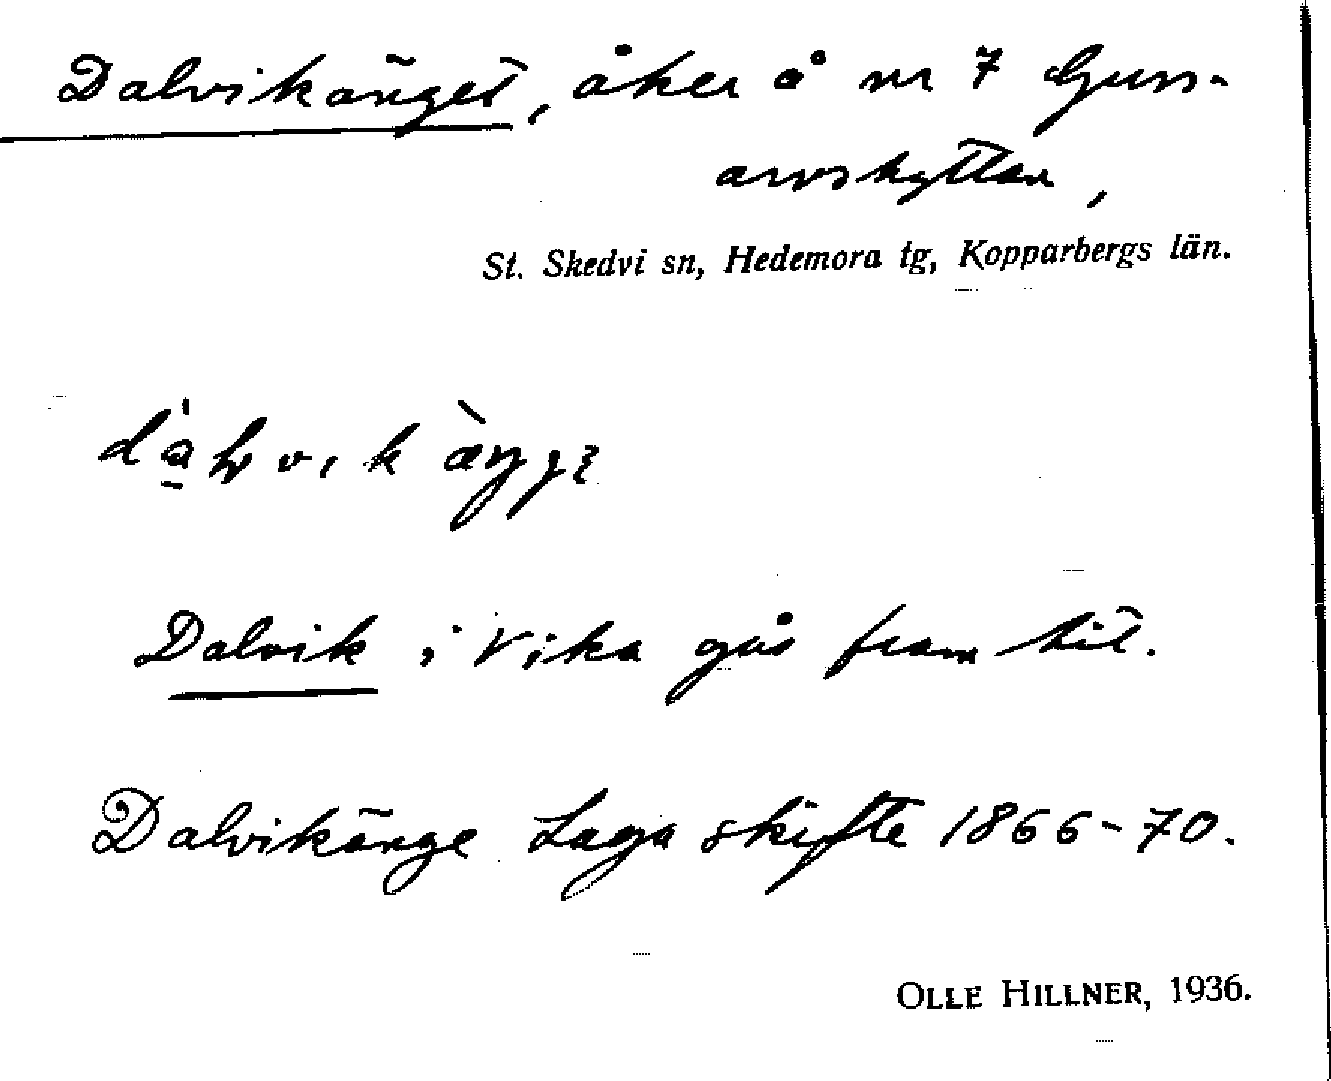 Dalvikänget, åker å nr 7 Gjuss-
arvshyttan,
St. Skedvi sn, Hedemora tg, Kopparbergs län.
Dalvik i Vika går fram hit.
Dalvikänge Laga skifte 1866-70.
OLLE HILLNER, 1936.